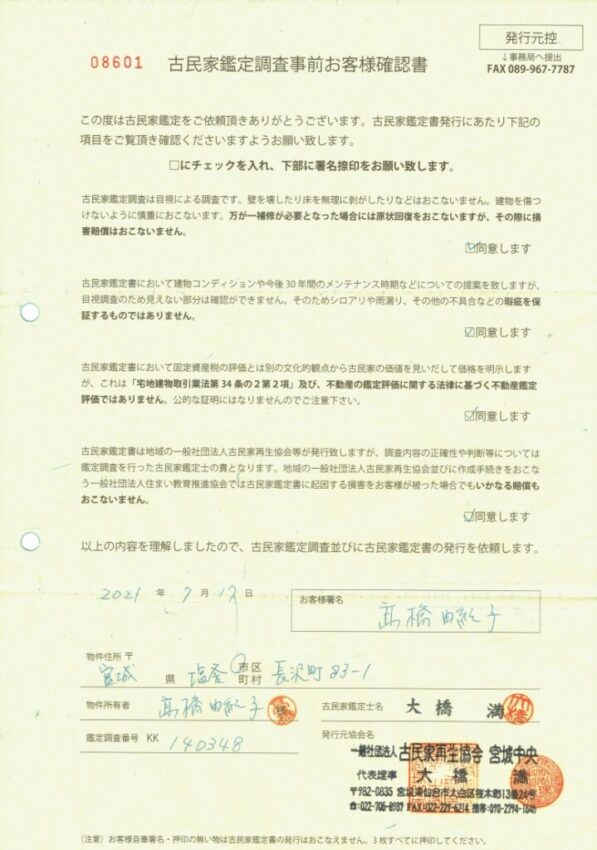 発行元控
↓事務局へ提出
FAX 089-967-7787
08601 古民家鑑定調査事前お客様確認書
この度は古民家鑑定をご依頼頂きありがとうございます。古民家鑑定書発行にあたり下記の
項目をご覧頂き確認くださいますようお願い致します。
□にチェックを入れ、下部に署名捺印をお願い致します。
古民家鑑定調査は目視による調査です。壁を壊したり床を無理に剥がしたりなどはおこないません。建物を傷つ
けないように慎重におこないます。万が一補修が必要となった場合には原状回復をおこないますが、その際に損
害賠償はおこないません。
☑同意します
古民家鑑定書において建物コンディションや今後30年間のメンテナンス時期などについての提案を致しますが、
目視調査のため見えない部分は確認ができません。そのためシロアリや雨漏り、その他の不具合などの瑕疵を保
証するものではありません。
☑同意します
古民家鑑定書において固定資産税の評価とは別の文化的観点から古民家の価値を見いだして価格を明示します
が、これは「宅地建物取引業法第34条の2第2項」及び、不動産の鑑定評価に関する法律に基づく不動産鑑定
評価ではありません。公的な証明にはなりませんのでご注意下さい。
☑同意します
古民家鑑定書は地域の一般社団法人古民家再生協会等が発行致しますが、調査内容の正確性や判断等については
鑑定調査を行った古民家鑑定士の責となります。地域の一般社団法人古民家再生協会並びに作成手続きをおこな
う一般社団法人住まい教育推進協会では古民家鑑定書に起因する損害をお客様が被った場合でもいかなる賠償も
おこないません。
☑同意します
以上の内容を理解しましたので、古民家鑑定調査並びに古民家鑑定書の発行を依頼します。
2021 年 7 月 日
お客様署名
髙橋 由紀子
物件住所 〒
宮城 県 塩釜 市区町村 長沢町 83-1
物件所有者 髙橋 由紀子
古民家鑑定士名 大橋 満
鑑定調査番号 KK 140348
発行元協会名
一般社団法人 古民家再生協会 宮城中央
代表理事 大橋 満
〒982-0835 宮城県仙台市太白区桜木町13番24号
☎:022-706-8187
(注意) お客様自筆署名・押印の無い物は古民家鑑定書の発行はおこなえません。3枚すべてに押印してください。